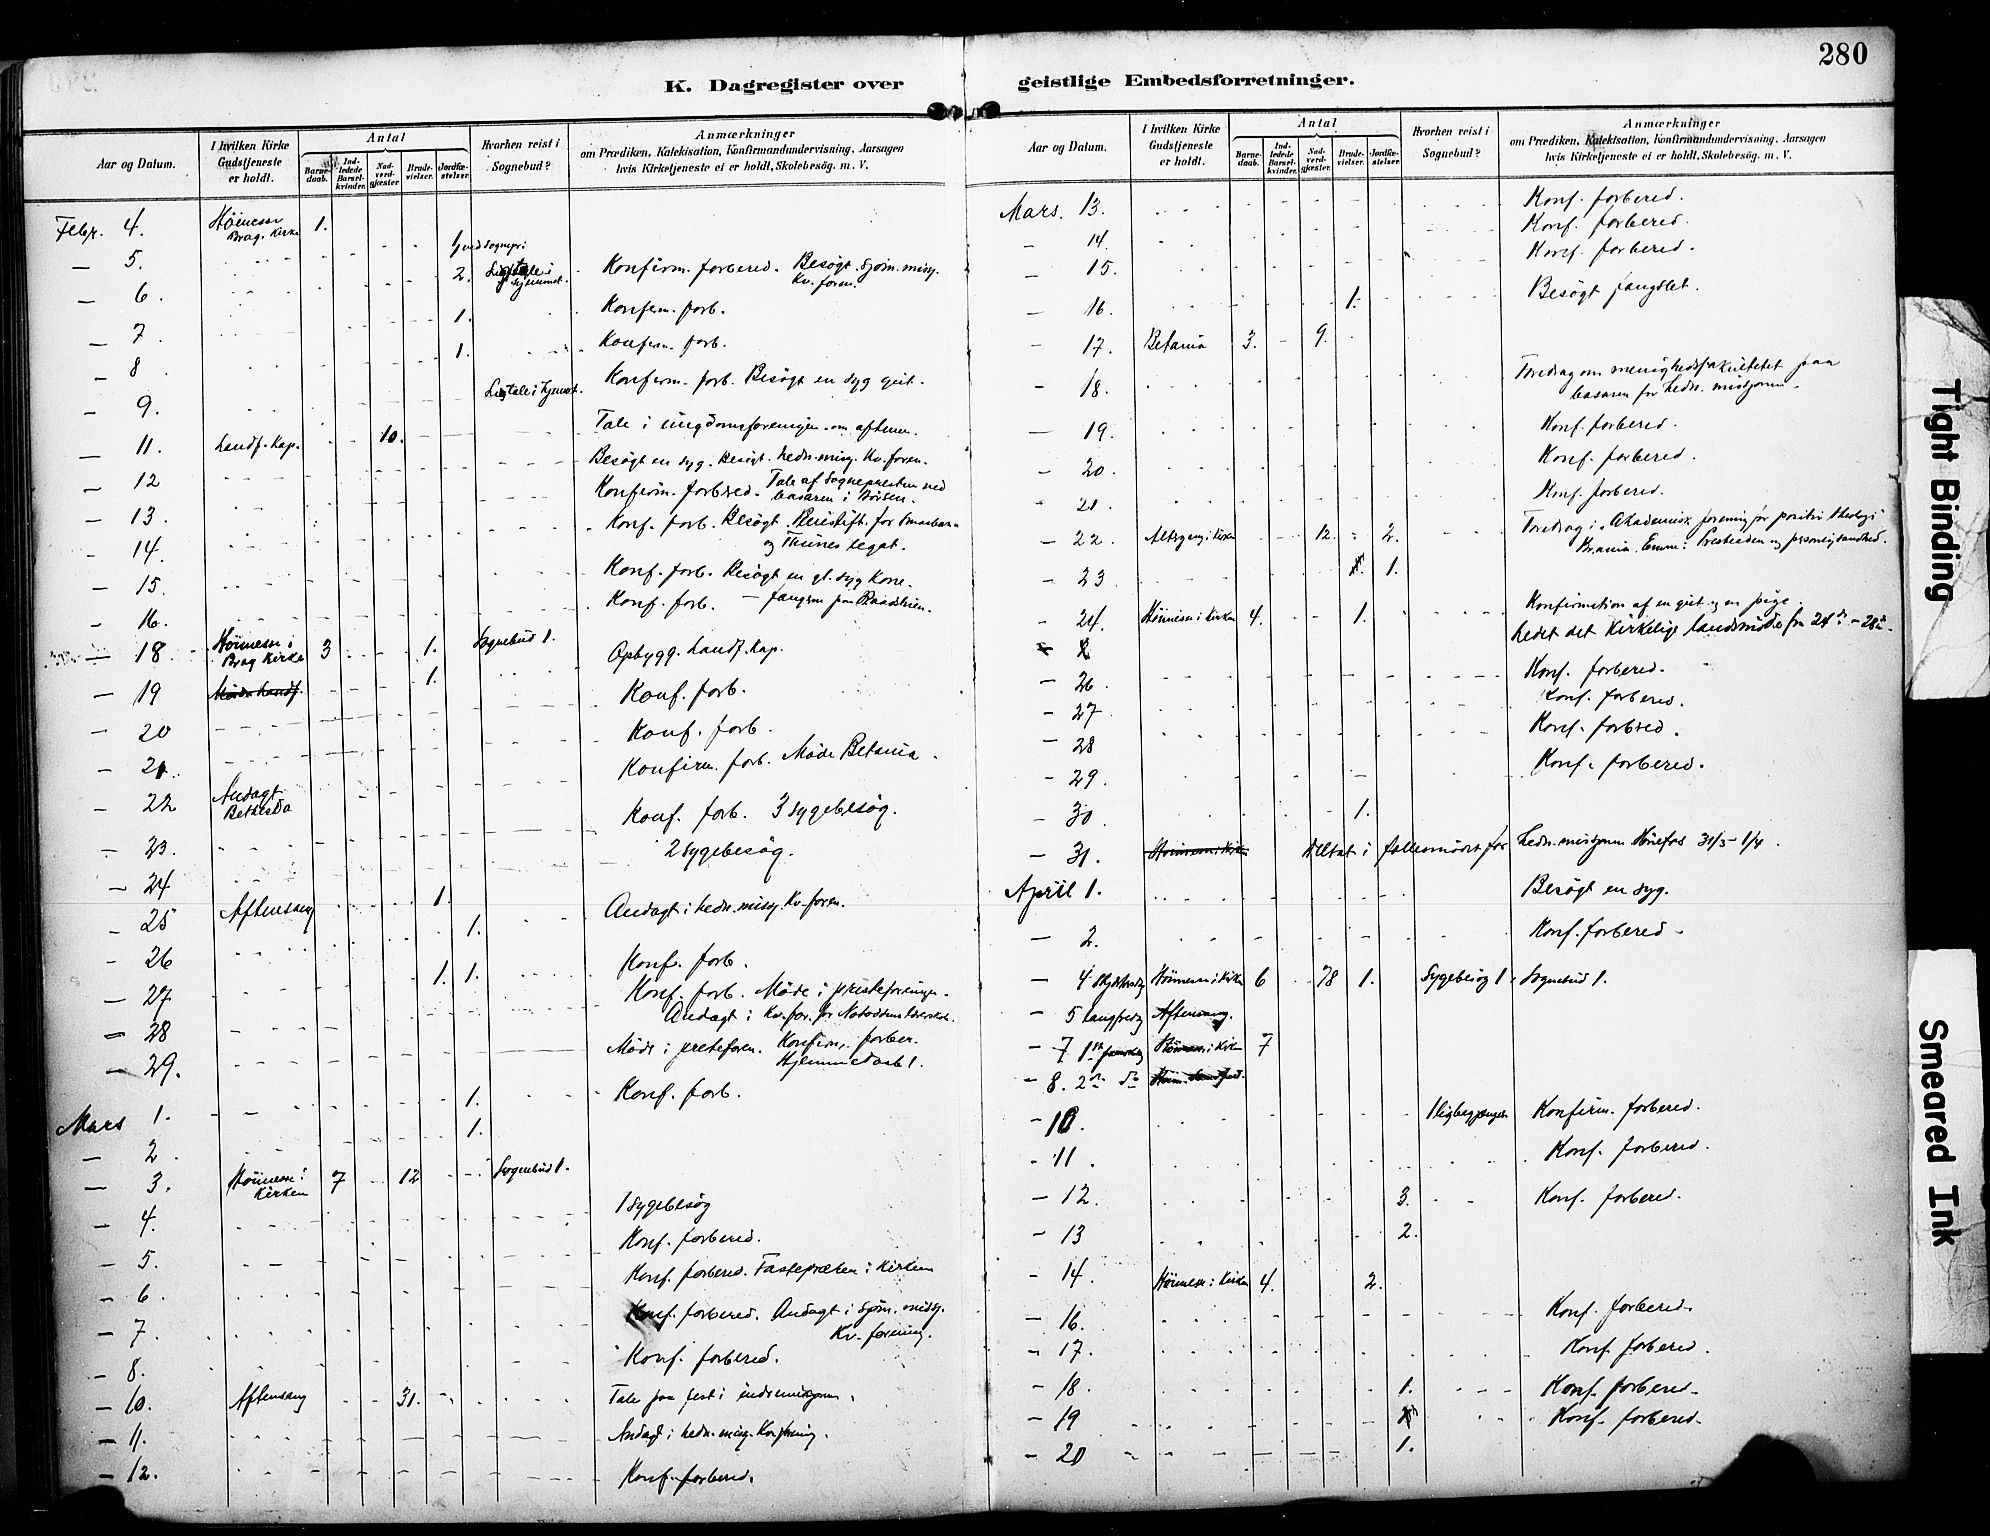 280
K. Dagregister over geistlige Embedsforretninger.
Aar og Datum.
I hvilken Kirke Gudstjeneste er holdt.
Antal
Barnedaab.
Indledede Barselkvinder.
Nadverdgjæster.
Brudevielser.
Jordfæstelser.
Hvorhen reist i Sognebud?
Anmærkninger
om Prædiken, Katekisation, Konfirmandundervisning, Aarsagen
hvis Kirketjeneste ei er holdt, Skolebesøg. m. V.
Febr. 4. Høimesse Brag. Kirke 1.
— 5. 2. Ligtale i hjemmet. Konfirm. forbered. Besøgt sjøm. miss. Kv. foren.
— 6. 1. Konfirm. forb.
— 7. 1. Konfirm. forb.
— 8. Ligtale i hjemmet. Konfirm. forb. Besøgt en syg gut.
— 9.
— 11. Landf. Kap. 10. Tale i ungdomsforeningen om aftenen.
— 12 Besøgt en syg. Besøgt hedn. miss. Kv. foren.
— 13. Konfirm. forbered. Tale af Sognepresten ved basaren i Børsen.
— 14. Konf. forb. Besøgt for Smaabarn og Thunes legat.
— 15. Konf. forb. Besøgt en gl. syg Kone.
— 16. Konf. forb.
— 18. Høimesse i Brag Kirke 3 1. Sognebud 1. Opbygg. Landf. Kap.
— 19 1. Konf. forb.
— 20 Konf. forb.
— 21. Konfirm. forb. Møde Betania.
— 22 Andagt Bethesda Konf. forb. 3 sygebesøg.
— 23. 2 sygebesøg.
— 24 1.
— 25 Aftensang 1. Andagt i hedn. miss. Kv. foren.
— 26 1. 1. Konf. forb.
— 27 Konf. forb. Møde i presteforeningen.
— 28 Andagt i Kv. for. for Notoddens
— 29. Møde i presteforen. Konfirm. forber. Hjemmedaab 1.
Mars 1. 1. Konf. forb.
— 2 1.
— 3. Høimesse i Kirken 7 12 Sognebud 1.
— 4. 1 sygebesøg
— 5. Konf. forbered.
— 6. Konf. forbered. Fastepræken i Kirken
— 7. Konf. forbered. Andagt i sjøm. miss. Kv. forening.
— 8. Konf. forbered.
— 10. Aftensang 31. Tale paa fest i indremissionen.
— 11. Andagt i hedn. miss. Kv. forening.
— 12. Konf. forbered.
Aar og Datum.
I hvilken Kirke Gudstjeneste er holdt.
Antal
Barnedaab.
Indledede Barselkvinder.
Nadverdgjæster.
Brudevielser.
Jordfæstelser.
Hvorhen reist i Sognebud?
Anmærkninger
om Prædiken, Katekisation, Konfirmandundervisning, Aarsagen
hvis Kirketjeneste ei er holdt, Skolebesøg. m. V.
Mars. 13. Konf. forbered.
— 14. Konf. forbered.
— 15. Konf. forbered.
— 16. 1. Besøgt fængslet.
— 17. Betania 3. 9.
— 18. Foredrag om menighedsfakultetet paa basaren for hedn. missionen.
— 19. Konf. forbered.
— 20. Konf. forbered.
— 21. Konf. forbered.
— 22. Altergang i Kirken 12. 2. Foredrag i "Akademisk forening for positiv theologi"
— 23 1.
— 24. Høimesse i Kirken 4. 1. Konfirmation af en gut og en pige.
Ledet det kirkelige landsmøde fra 24de – 28de.
— 26. Konf. forbered.
— 27 Konf. forbered.
— 28 Konf. forbered.
— 29. Konf. forbered.
— 30. 1.
— 31. Høimesse i Kirken Deltat i fællesmødet for hedn. missionen Hønefos 31/3 – 1/4.
April 1. Besøgt en syg.
— 2. Konf. forbered.
— 4 Skjærtorsdag Høimesse i Kirken 6 78 1. Sygebesøg 1. Sognebud 1.
— 5 Langfredag Aftensang.
— 7 1ste Høimesse i Kirken 7
— 8. 2den do
— 10. 1 ligbegjængelse Konfirm. forbered.
— 11. Konf. forbered.
— 12. 3. Konf. forbered.
— 13 2.
— 14. Høimesse i Kirken 4. 2.
— 16. Konf. forbered.
— 17. Konf. forbered.
— 18. 1. Konf. forbered.
— 19 Konf. forbered.
— 20 1.
Tight Binding
Smeared Ink